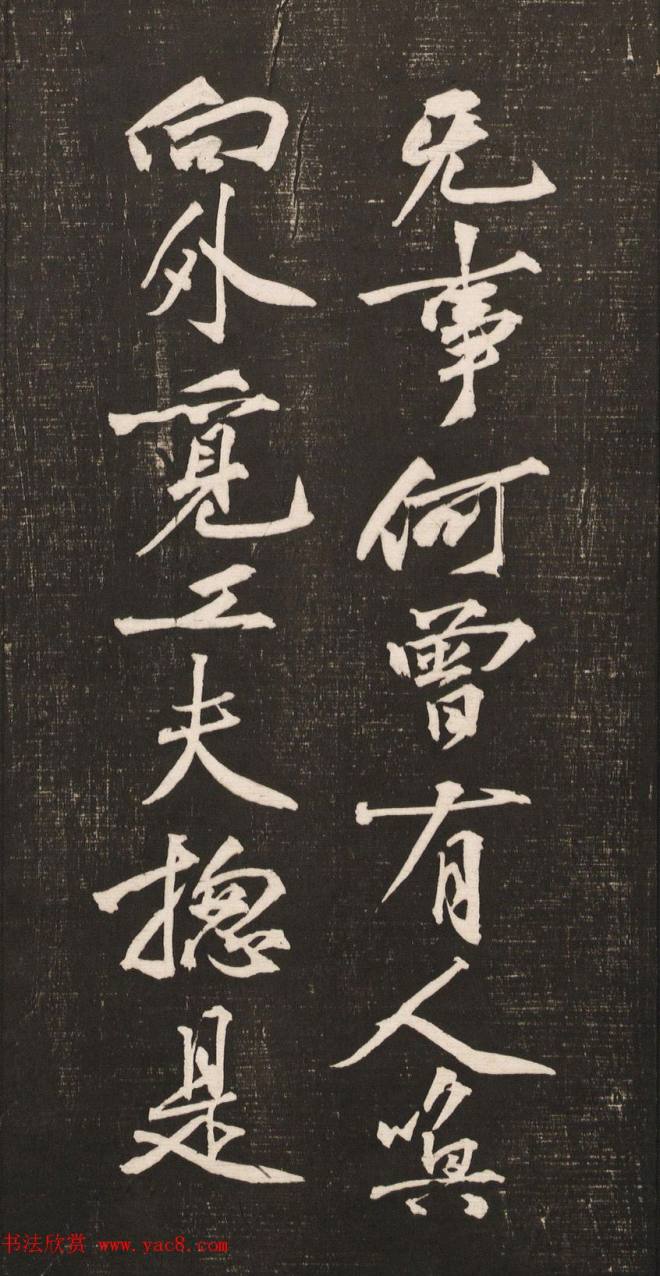 无事何曾有人嗔
向外覓工夫摠是
书法欣赏 www.yac8.com